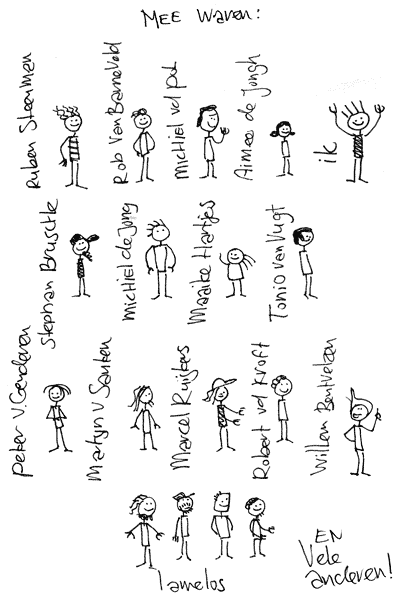 MEE WAREN:
Ruben Steenman
Rob Van Barneveld
Michiel vd Put
Aimee de Jongh
ik
Stephan Brusche
Michiel de Jong
Maaike Hartjes
Tonio van Vugt
Peter v. Genderen
Martyn v Santen
Marcel Ruijters
Robert vd Kroft
Willem Bentvelzen
lamelos
EN
Vele
anderen!